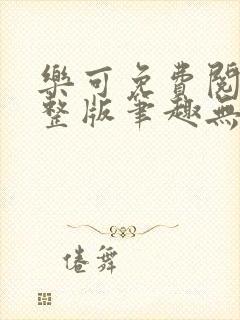 樂可免費閱
整版筆趣無
倦舞